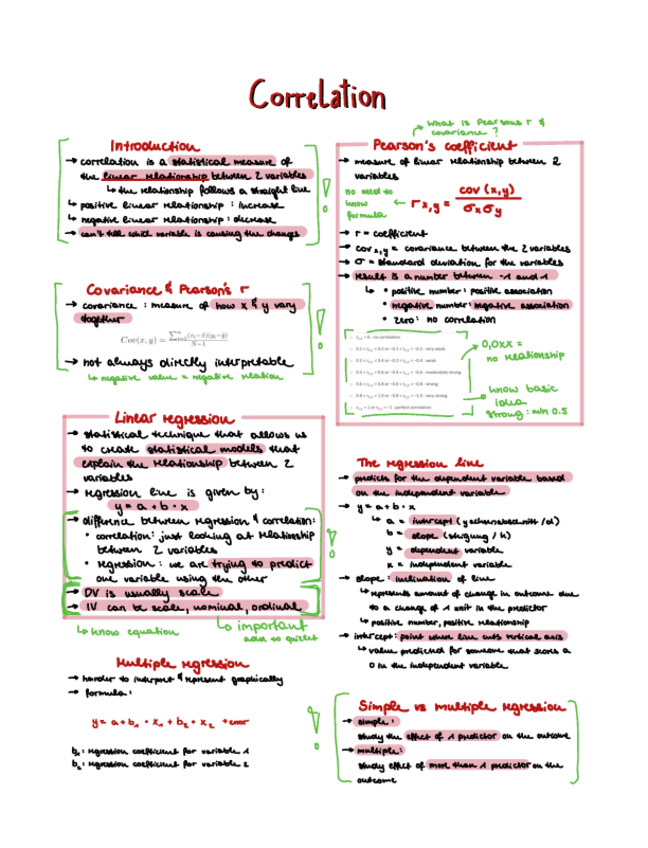 Correlation
Introduction
→ correlation is a statistical measure of
the linear relationship between 2 variables
↳ the relationship follows a straight line
→ positive linear relationship : increase
→ negative linear relationship : decrease
→ can't tell which variable is causing the changes
Covariance & Pearson's r
→ covariance : measure of how x & y vary
together
Cov(x, y) = Σⁿ(xᵢ-x̄)(yᵢ-ȳ) / N-1
→ not always directly interpretable
↳ negative value = negative relation
Linear regression
→ statistical technique that allows us
to create statistical models that
explain the relationship between 2
variables
→ regression line is given by:
y = a + b · x
→ difference between regression & correlation:
• correlation: just looking at relationship
between 2 variables
• regression : we are trying to predict
one variable using the other
→ DV is usually scale
→ IV can be scale, nominal, ordinal
↳ know equation
↳ important
add to quizlet
Multiple regression
→ harder to interpret & represent graphically
→ formula:
y = a + b₁ · x₁ + b₂ · x₂ + error
b₁: regression coefficient for variable 1
b₂: regression coefficient for variable 2
What is Pearsons r &
covariance ?
Pearson's coefficient
→ measure of linear relationship between 2
variables
no need to
know
formula
r x,y = cov (x,y) / σx σy
→ r = coefficient
→ cov x,y = covariance between the 2 variables
→ σ = standard deviation for the variables
→ result is a number between -1 and 1
↳ • positive number: positive association
• negative number: negative association
• zero: no correlation
0,0xx =
no relationship
know basic
idea
strong: min 0.5
The regression line
→ predicts for the dependent variable based
on the independent variable
→ y = a + b · x
↳ a = intercept (yachsenabschnitt /d)
b = slope (steigung / k)
y = dependent variable
x = independent variable
→ slope: inclination of line
↳ represents amount of change in outcome due
to a change of 1 unit in the predictor
↳ positive number, positive relationship
→ intercept: point where line cuts vertical axis
↳ value predicted for someone that scores a
0 in the independent variable
Simple vs multiple regression
→ simple:
study the effect of 1 predictor on the outcome
→ multiple:
study effect of more than 1 predictor on the
outcome